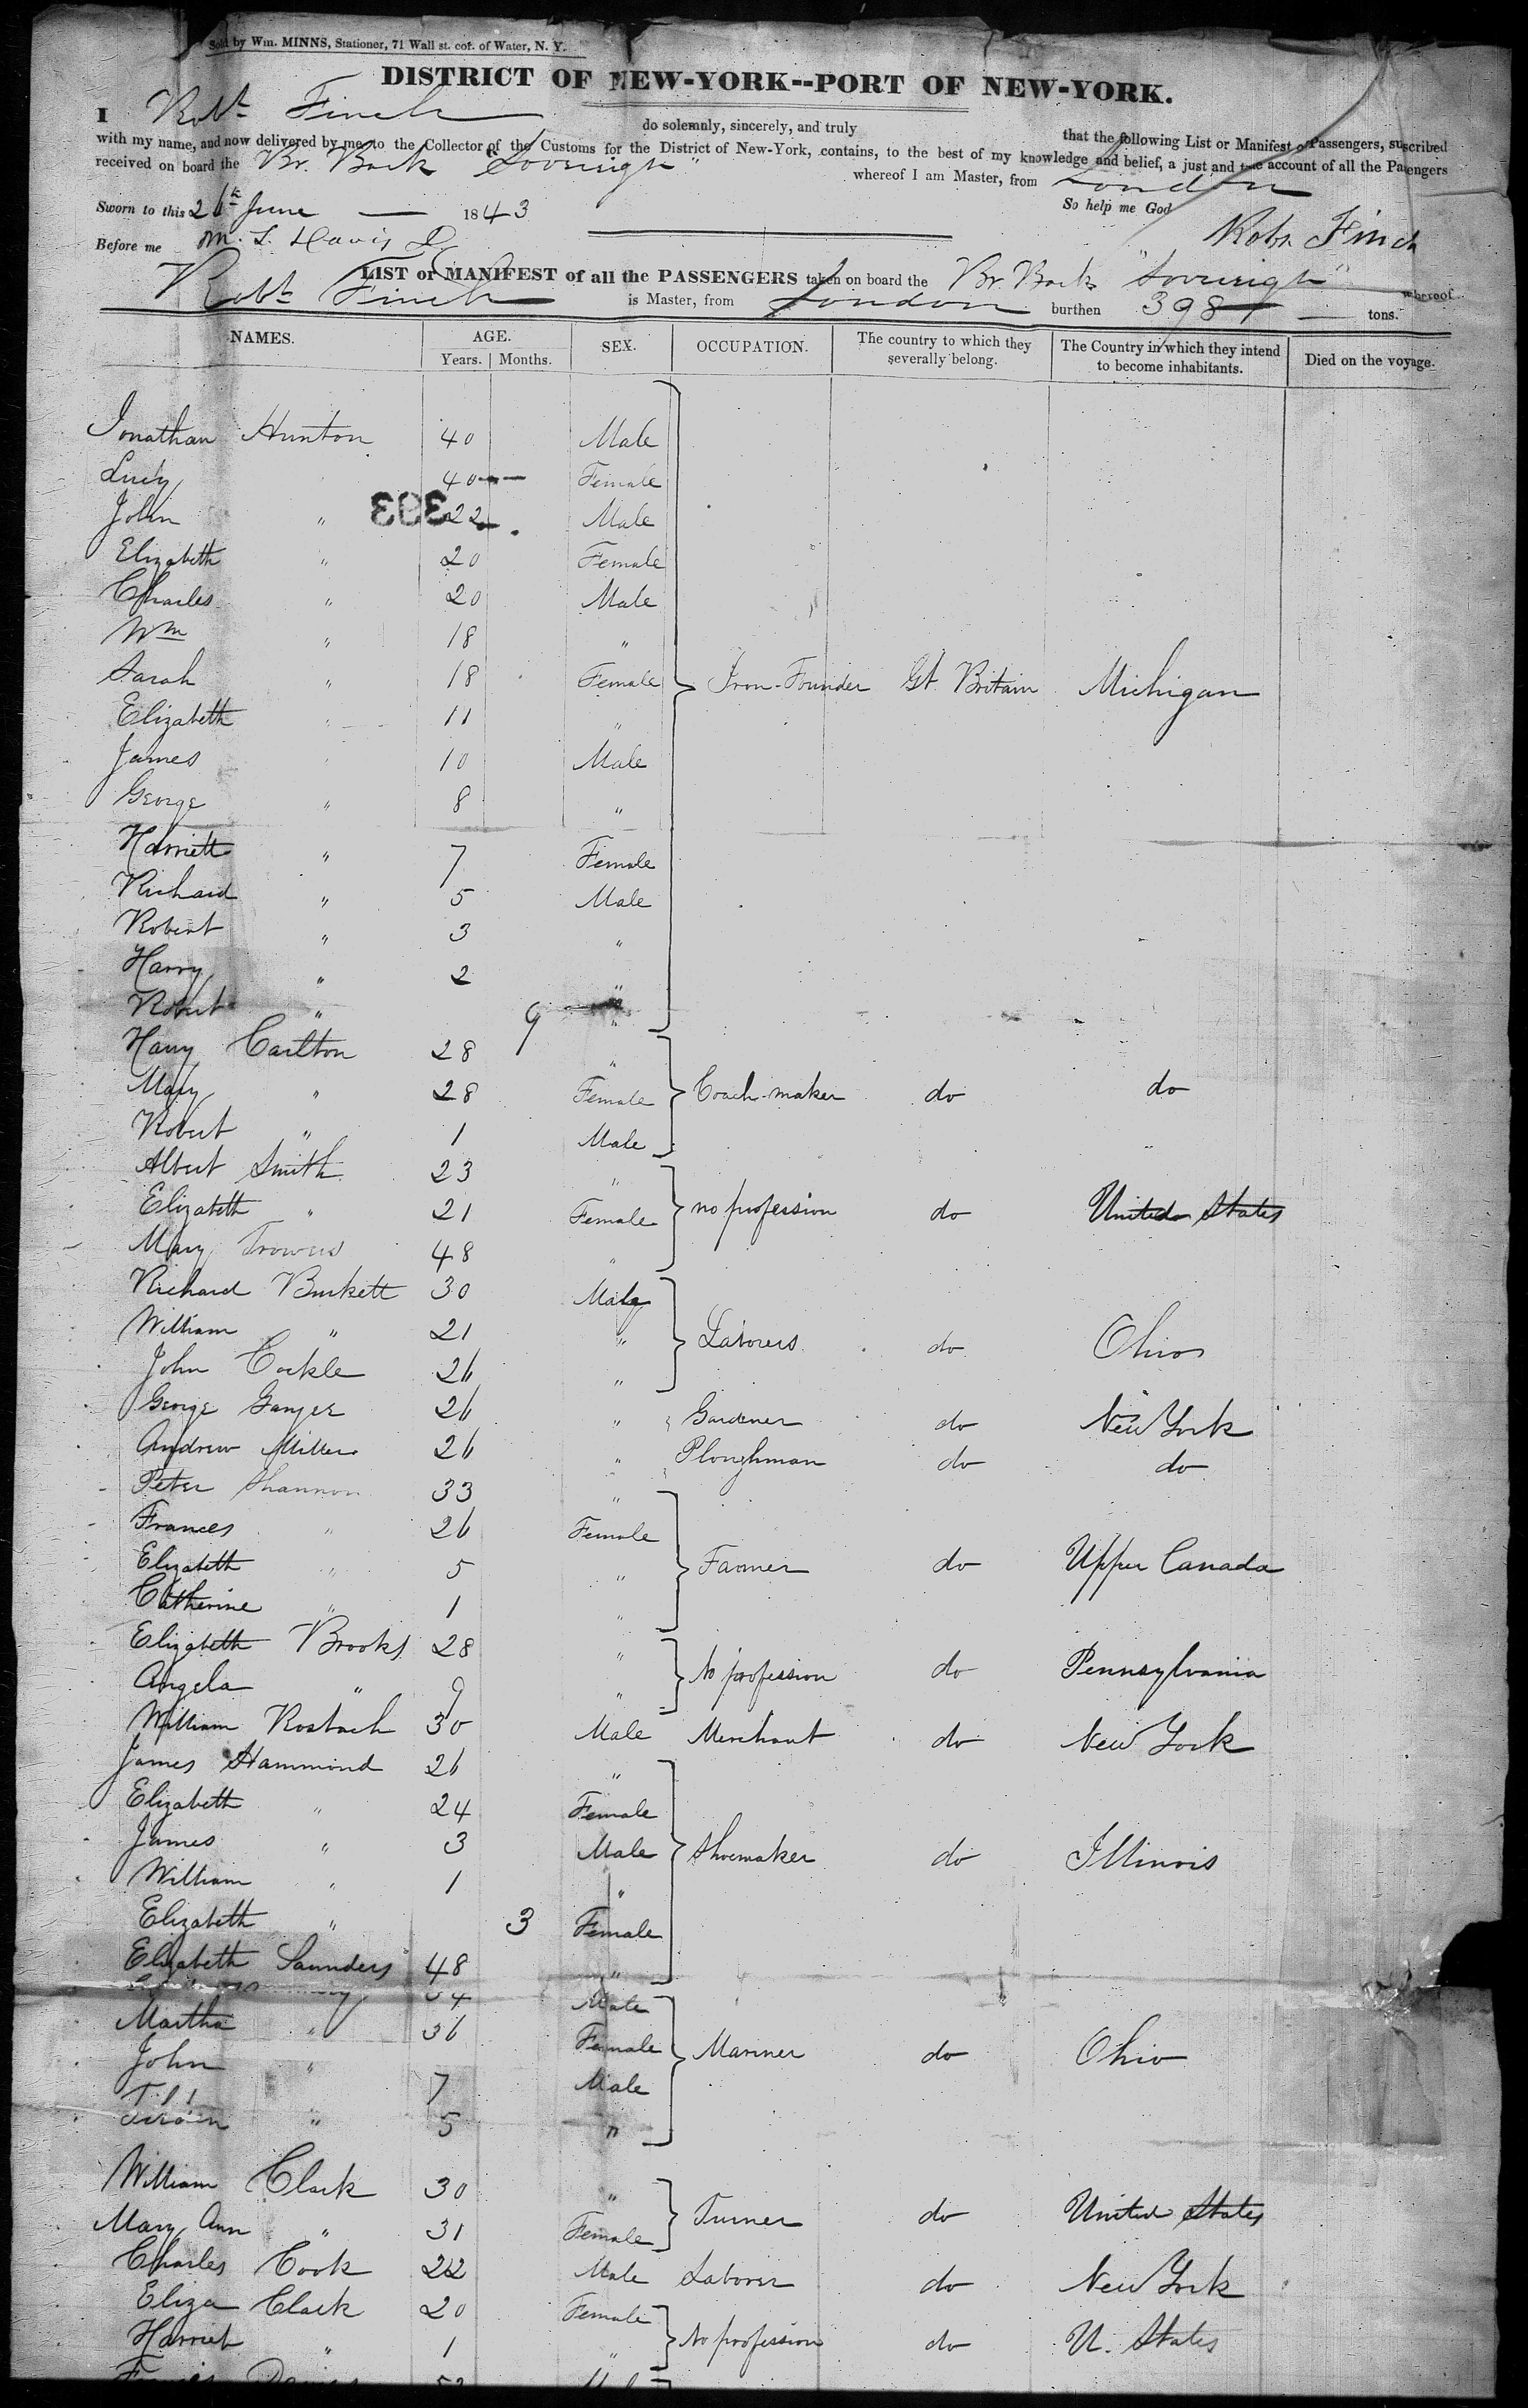 Sold by Wm. MINNS, Stationer, 71 Wall st. cor. of Water, N. Y.
DISTRICT OF NEW-YORK--PORT OF NEW-YORK.
I Robt Finch do solemnly, sincerely, and truly that the following List or Manifest of Passengers, suscribed
with my name, and now delivered by me to the Collector of the Customs for the District of New-York, contains, to the best of my knowledge and belief, a just and true account of all the Passengers
received on board the Br. Bark "Soverigh" whereof I am Master, from London
Sworn to this 26th June 1843 So help me God
Before me M. L. Davis Robt Finch
LIST or MANIFEST of all the PASSENGERS taken on board the Br. Bark "Soverigh" whereof
Robt Finch is Master, from London burthen 398 tons.
NAMES. AGE. SEX. OCCUPATION. The country to which they severally belong. The Country in which they intend to become inhabitants. Died on the voyage.
Years. Months.
Jonathan Hunton 40 Male
Lucy 40 Female
393
John " 22 Male
Elizabeth " 20 Female
Charles " 20 Male
Wm " 18 "
Sarah " 18 Female Iron-Founder Gt Britain Michigan
Elizabeth " 11 "
James " 10 Male
George " 8 "
Harriett " 7 Female
Richard " 5 Male
Robert " 3 "
Harry " 2 "
Robert " 9 "
Harry Carlton 28 "
Mary " 28 Female Coach-maker do do
Robert " 1 Male
Albert Smith 23 "
Elizabeth " 21 Female no profession do United States
Mary Trowers 48 "
Richard Burkett 30 Male
William " 21 " Laborers do Ohio
John Cockle 26 "
George Ganger 26 " Gardener do New York
Andrew Miller 26 " Ploughman do do
Peter Shannon 33 "
Frances " 26 Female
Elizabeth " 5 " Farmer do Upper Canada
Catherine " 1 "
Elizabeth Brooks 28 "
Angela " 9 " No profession do Pennsylvania
William Rosbach 30 Male Merchant do New York
James Hammond 26 "
Elizabeth " 24 Female
James " 3 Male Shoemaker do Illinois
William " 1 "
Elizabeth " 3 Female
Elizabeth Saunders 48 "
Male
Martha " 36 Female Mariner do Ohio
John " 7 Male
" 5 "
William Clark 30 "
Mary Ann " 31 Female Turner do United States
Charles Cook 22 Male Laborer do New York
Eliza Clark 20 Female
Harriet " 1 " No profession do U. States